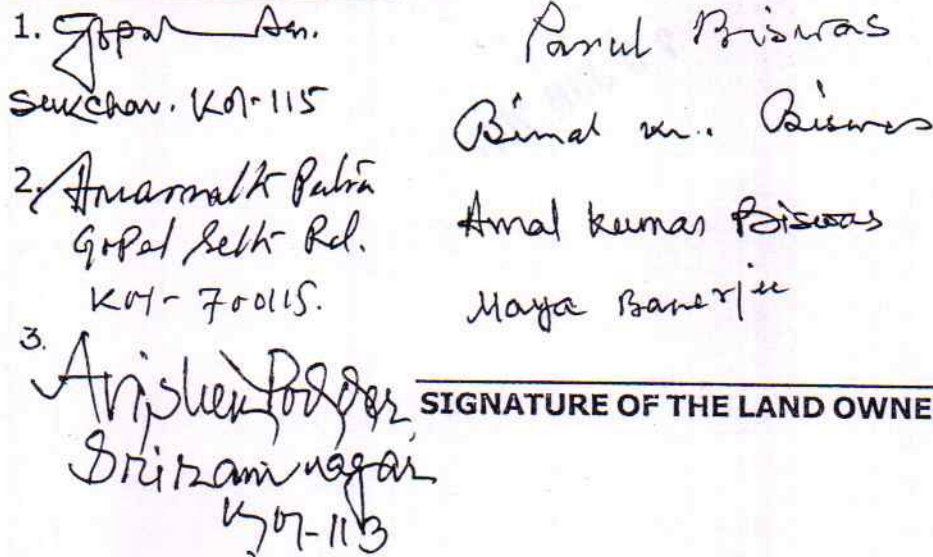 1. Gopal Das.
Sukchar. Kol-115
2. Amarnath Patra
Gopal Seth Rd.
Kol- 700115.
3. Avishek Poddar
Sriramnagar
Kol-113
Parul Biswas
Bimal kr. Biswas
Amal kumar Biswas
Maya Banerjee
SIGNATURE OF THE LAND OWNE